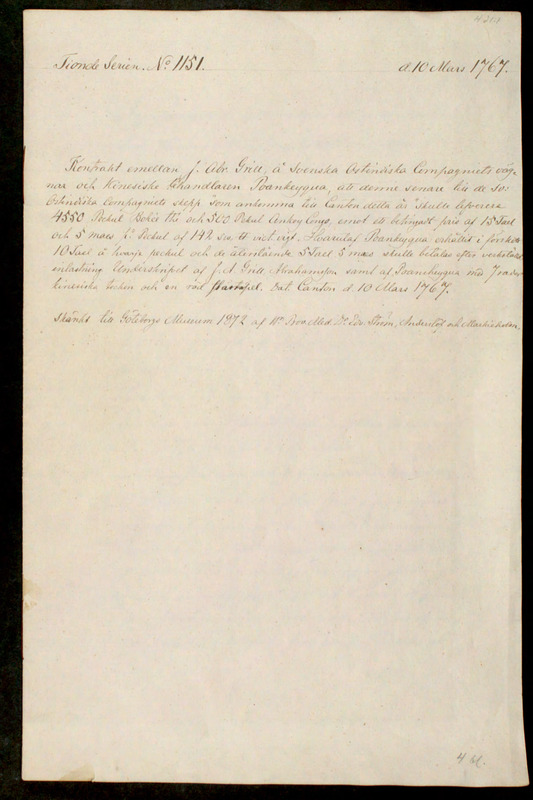 Tionde Serien. No 1151.
d. 10 Mars 1767.
Kontrakt emellan J. Abr. Grill, å Svenska Ostindiska Compagniets väg-
nar och Kinesiske Handlaren Poankeyqua, att denne senare till de Sv:
Ostindiska Compagniets skepp som ankomma till Canton detta år skulle leverera
4550 Pekul Bohe The och 500 Pekul Ankay Congo, emot ett betingadt pris af 15 Tael
och 5 maes pr Peckul af 142 sv. tt vict. vigt. Hvarutaf Poankeyqua erhållit i förskott
10 Tael å hvarje peckul och de återstående 5 Tael 5 maes skulle betalas efter verkstäld
inlastning. Underskrifvet af J. A. Grill Abrahamson samt af Poankeyqua med
kinesiska tecken och en röd stämpel. Dat. Canton d. 10 Mars 1767.
Skänkt till Göteborgs Museum 1872 af Hr Prov. Med. Dr. Edv. Ström, Anderslöf och Markieholm.
4 bl.